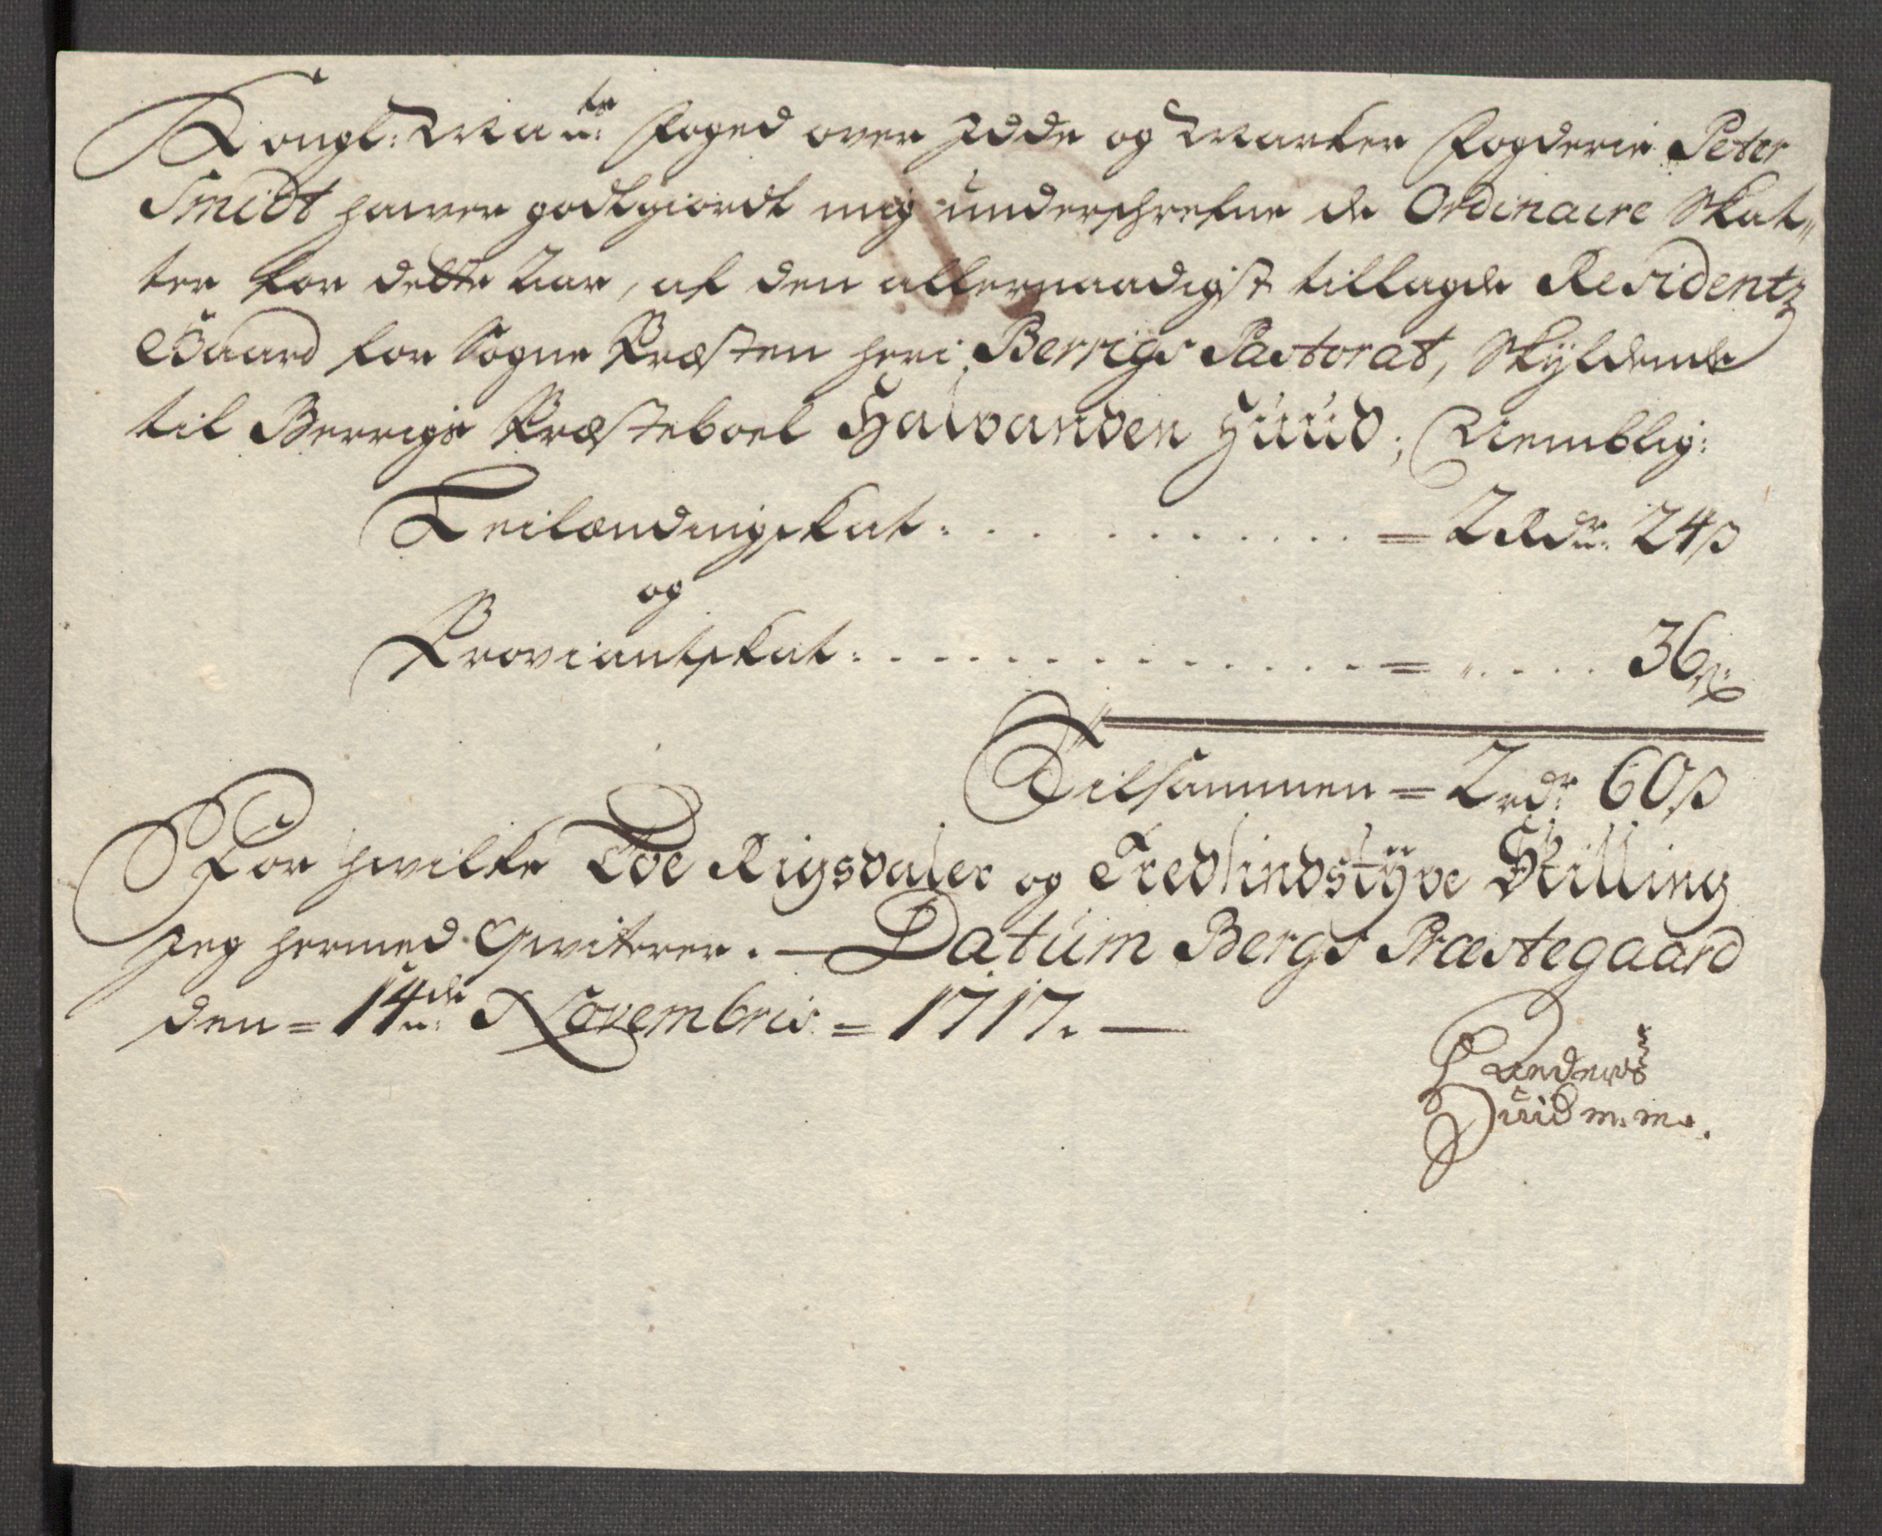 Kongl: Ma:ts Foged over Idde og Marker Fogderie Peter
Smidt haver godtgiordt mig underschrefne de Ordinaire Skat„
ter for dette Aar, af den allernaadigst tillagde Residentz
Gaard for Sogne Præsten heri Berrigs Pastorat, Skyldende
til Berrigs Præsteboel Halvanden Huud; Nemblig:
Leilændingskat: . . . . . . . . . . = 2 Rdr: 24 ß
og
Proviantskat: . . . . . . . . . . . . . . = „ . . . . 36 ß:
Tilsammen = 2 rdr 60 ß
For hvilke Toe Rigsdaler og Tredsindstÿve Skilling
Jeg hermed Qvitterer. — Datum Bergs Præstegaard
den = 14de Novembris = 1717. —
Anders
Huid m. m.